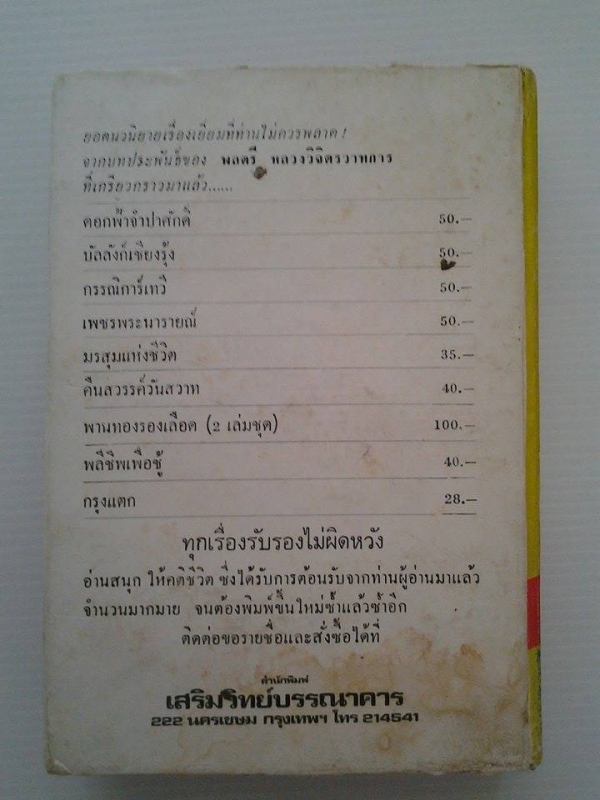 ยอดนวนิยายเรื่องเยี่ยมที่ท่านไม่ควรพลาด !
จากบทประพันธ์ของ พลตรี หลวงวิจิตรวาทการ
ที่เกรียวกราวมาแล้ว......
ดอกฟ้าจำปาศักดิ์ 50.—
บัลลังก์เชียงรุ้ง 50.—
กรรณิการ์เทวี 50.—
เพชรพระนารายณ์ 50.—
มรสุมแห่งชีวิต 35.—
คืนสวรรค์วันสวาท 40.—
พานทองรองเลือด (2 เล่มชุด) 100.—
พลีชีพเพื่อชู้ 40.—
กรุงแตก 28.—
ทุกเรื่องรับรองไม่ผิดหวัง
อ่านสนุก ให้คติชีวิต ซึ่งได้รับการต้อนรับจากท่านผู้อ่านมาแล้ว
จำนวนมากมาย จนต้องพิมพ์ขึ้นใหม่ซ้ำแล้วซ้ำอีก
ติดต่อขอรายชื่อและสั่งซื้อได้ที่
สำนักพิมพ์
เสริมวิทย์บรรณาคาร
222 นครเขษม กรุงเทพฯ โทร 214541